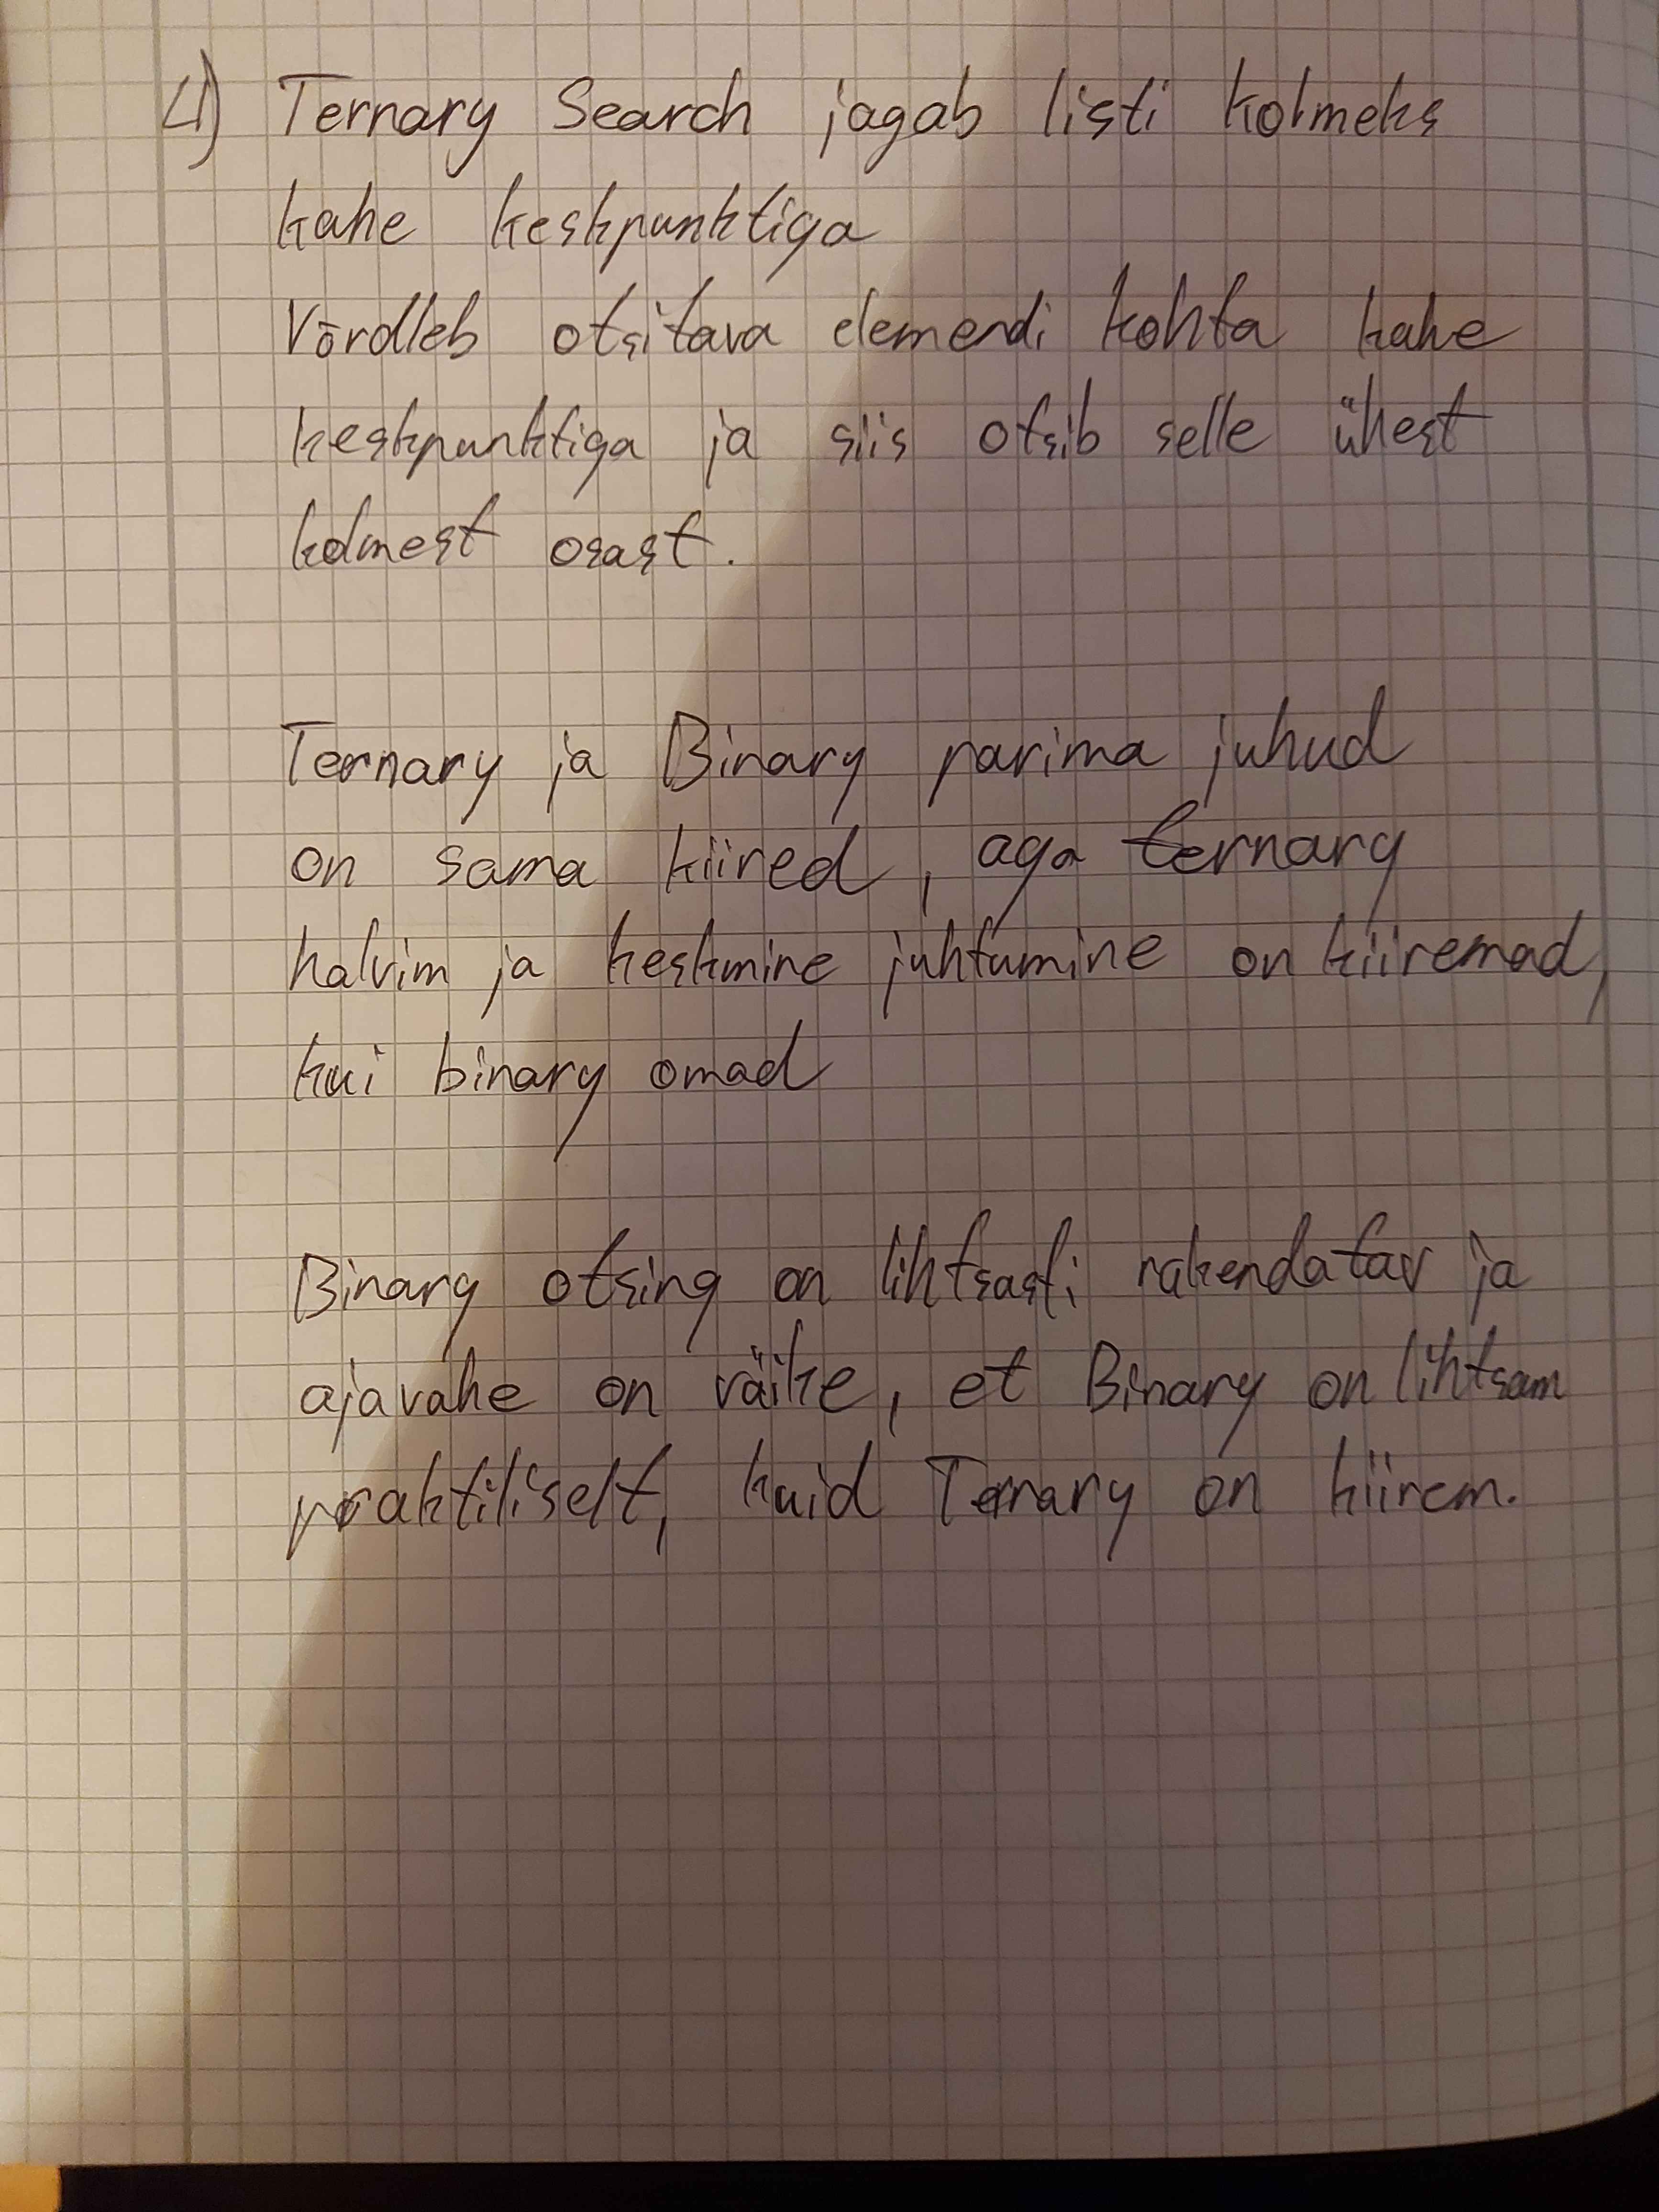 4) Ternary Search jagab listi kolmeks
kahe keskpunktiga
Võrdleb otsitava elemendi kohta kahe
keskpunktiga ja siis otsib selle ühest
kolmest osast.
Ternary ja Binary parima juhud
on sama kiired, aga ternary
halvim ja keskmine juhtumine on kiiremad,
kui binary omad
Binary otsing on lihtsasti rakendatav ja
ajavahe on väike, et Binary on lihtsam
praktiliselt, kuid Ternary on kiirem.